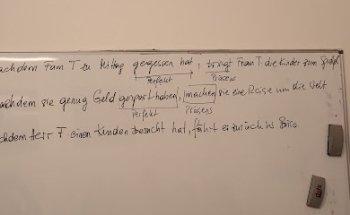 achdem Frau T zu Mittag gegessen hat, bringt Frau T die Kinder zum
Perfekt Präsens
achdem sie genug Geld gespart haben, machen sie eine Reise um die Welt
Perfekt Präsens
chdem Herr T einen Kunden besucht hat, fährt er zurück ins Büro.